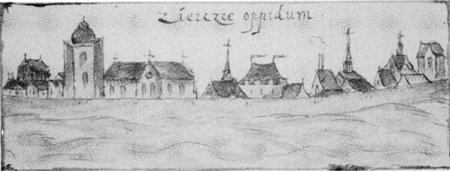 Zierczee oppidum